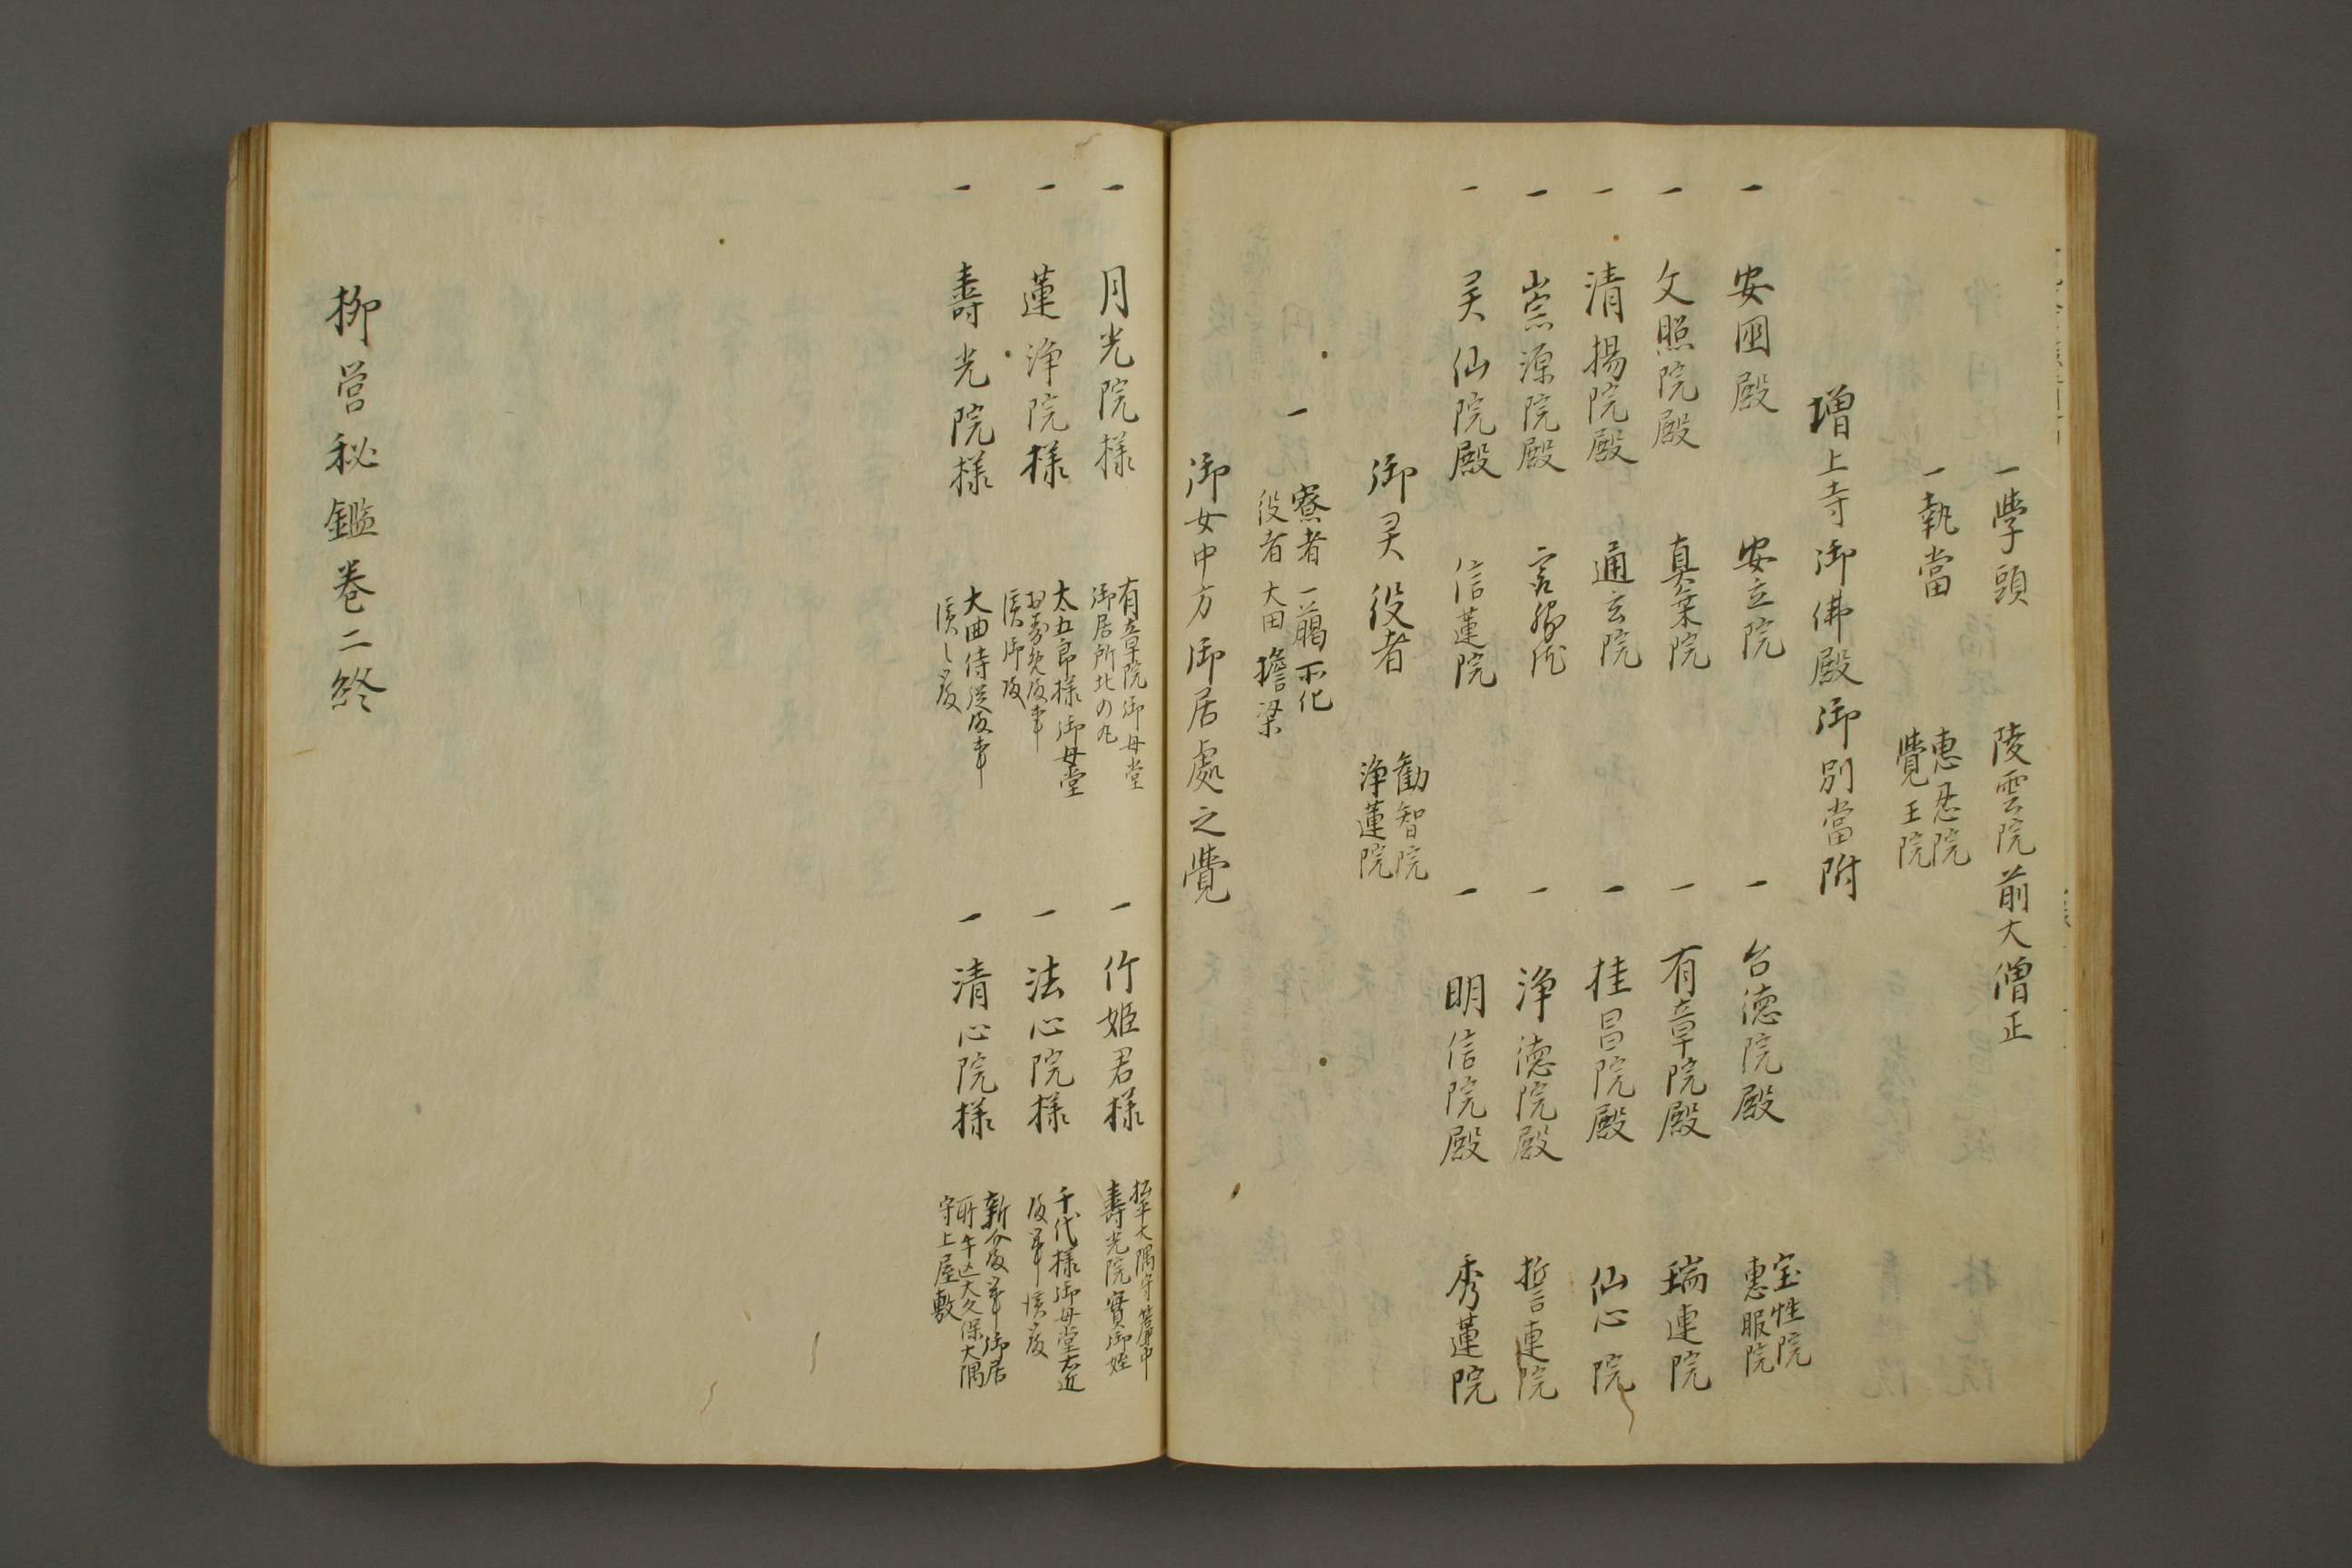 一學頭 陵雲院前大僧正
一執當 惠恩院
覺王院
増上寺御佛殿御別當附
一 安国殿 安立院
一 台徳院殿 宝性院
惠眼院
一 文照院殿 真乗院
一 有章院殿 瑞蓮院
一 清揚院殿 通玄院
一 桂昌院殿 仙心院
一 崇源院殿
一 浄徳院殿 誓蓮院
一 灵仙院殿 信蓮院
一 明信院殿 秀蓮院
御灵役者 勧智院
浄蓮院
一 寮者 一臈所化
役者 大田擔梁
御女中方御居處之覺
一 月光院様 有章院御母堂
御居所北の丸
一 竹姫君様 松平大隅守簾中
壽光院實御姪
一 蓮浄院様 太五郎様御母堂
一 法心院様 千代様御母堂右近
一 壽光院様 大典侍殿事
一 清心院様 新介殿事御居
所牛込大久保大隅
守上屋敷
柳営秘鑑巻二終